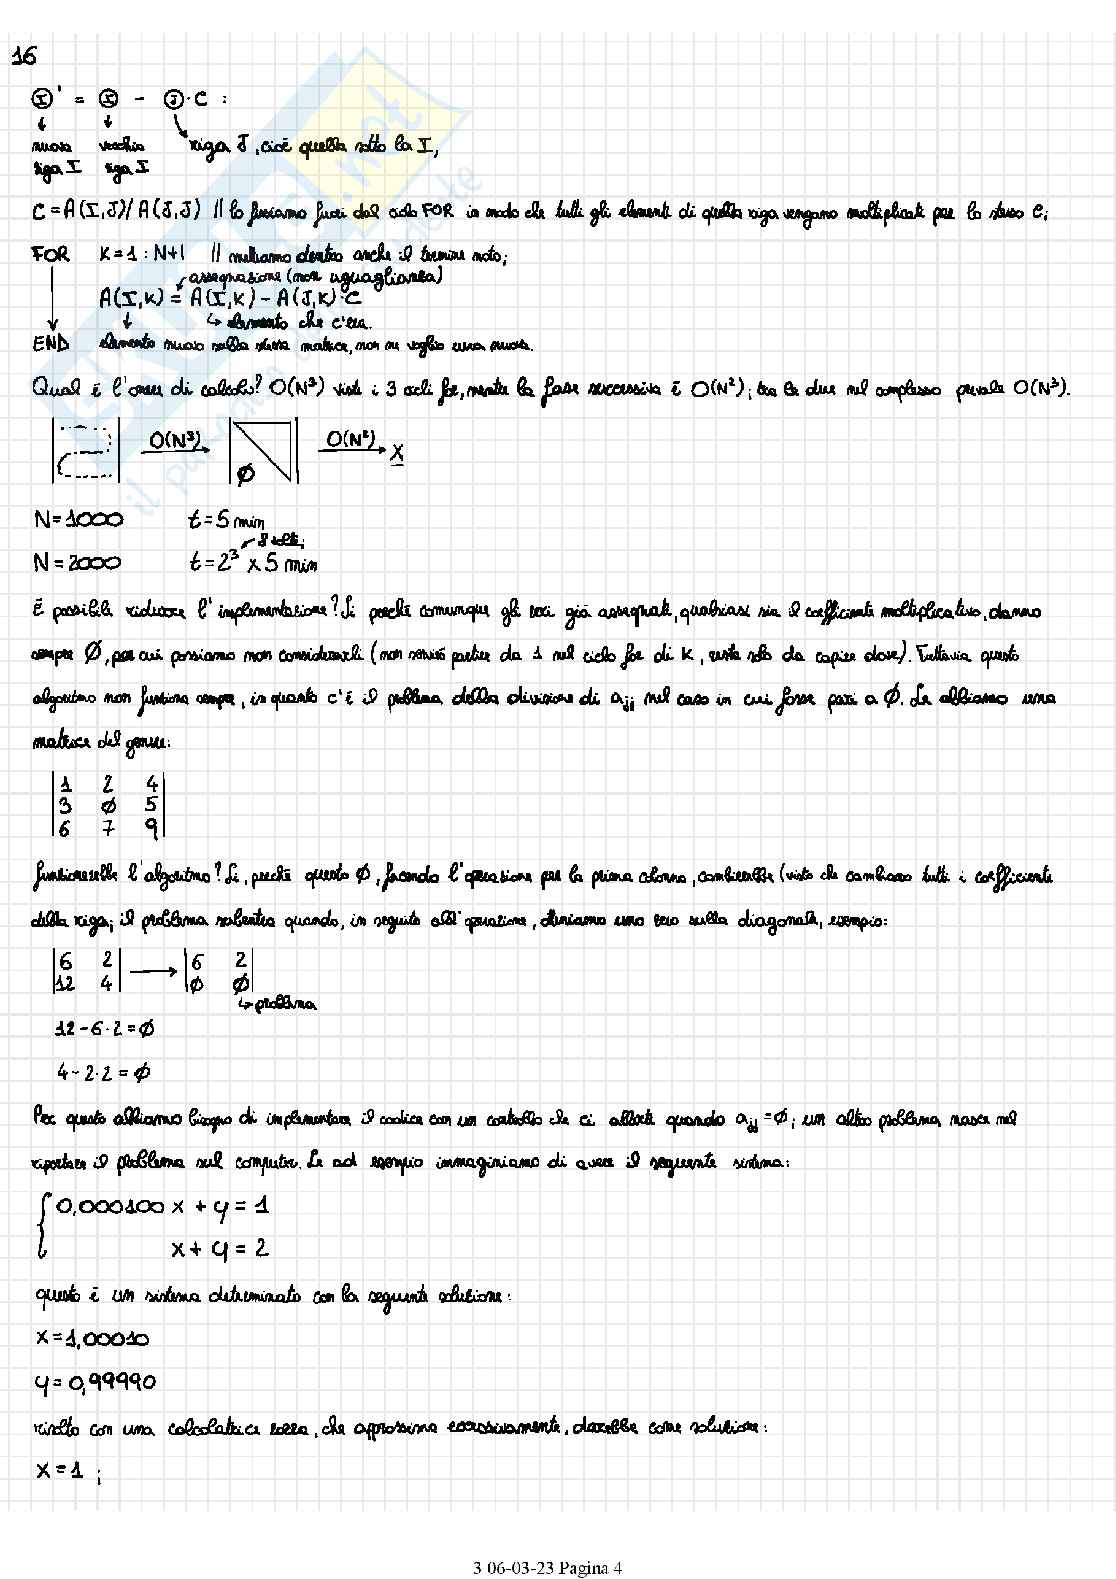 16
I' = I - J · C :
nuova vecchia riga J, cioè quella sotto la I,
riga I riga I
C = A(I,J)/A(J,J) // lo facciamo fuori dal ciclo FOR in modo che tutti gli elementi di quella riga vengano moltiplicati per lo stesso C;
FOR K=1 : N+1 // mettiamo dentro anche il termine noto;
assegnazione (non uguaglianza)
A(I,K) = A(I,K) - A(J,K)·C
elemento che c'era.
END elemento nuovo nella stessa matrice, non ne voglio una nuova.
Qual è l'onere di calcolo? O(N³) visti i 3 cicli for, mentre la fase successiva è O(N²); tra le due nel complesso prevale O(N³).
O(N³) O(N²) X
Ø
N=1000 t=5 min
8 volte;
N=2000 t=2³ x 5 min
È possibile ridurre l'implementazione? Sì perché comunque gli zeri già assegnati, qualsiasi sia il coefficiente moltiplicativo, danno
sempre Ø, per cui possiamo non considerarli (non servirà partire da 1 nel ciclo for di K, resta solo da capire dove). Tuttavia questo
algoritmo non funziona sempre, in quanto c'è il problema della divisione di ajj nel caso in cui fosse pari a Ø. Se abbiamo una
matrice del genere:
1 2 4
3 Ø 5
6 7 9
funzionerebbe l'algoritmo? Sì, perché questo Ø, facendo l'operazione per la prima colonna, cambierebbe (visto che cambiano tutti i coefficienti
della riga; il problema subentra quando, in seguito all'operazione, otteniamo uno zero sulla diagonale, esempio:
6 2 → 6 2
12 4 Ø Ø
problema
12 - 6·2 = Ø
4 - 2·2 = Ø
Per questo abbiamo bisogno di implementare il codice con un controllo che ci allerti quando ajj = Ø; un altro problema nasce nel
riportare il problema sul computer. Se ad esempio immaginiamo di avere il seguente sistema:
0,000100 x + y = 1
x + y = 2
questo è un sistema determinato con la seguente soluzione:
x = 1,00010
y = 0,99990
risolto con una calcolatrice rozza, che approssima eccessivamente, darebbe come soluzione:
x = 1 ;
3 06-03-23 Pagina 4